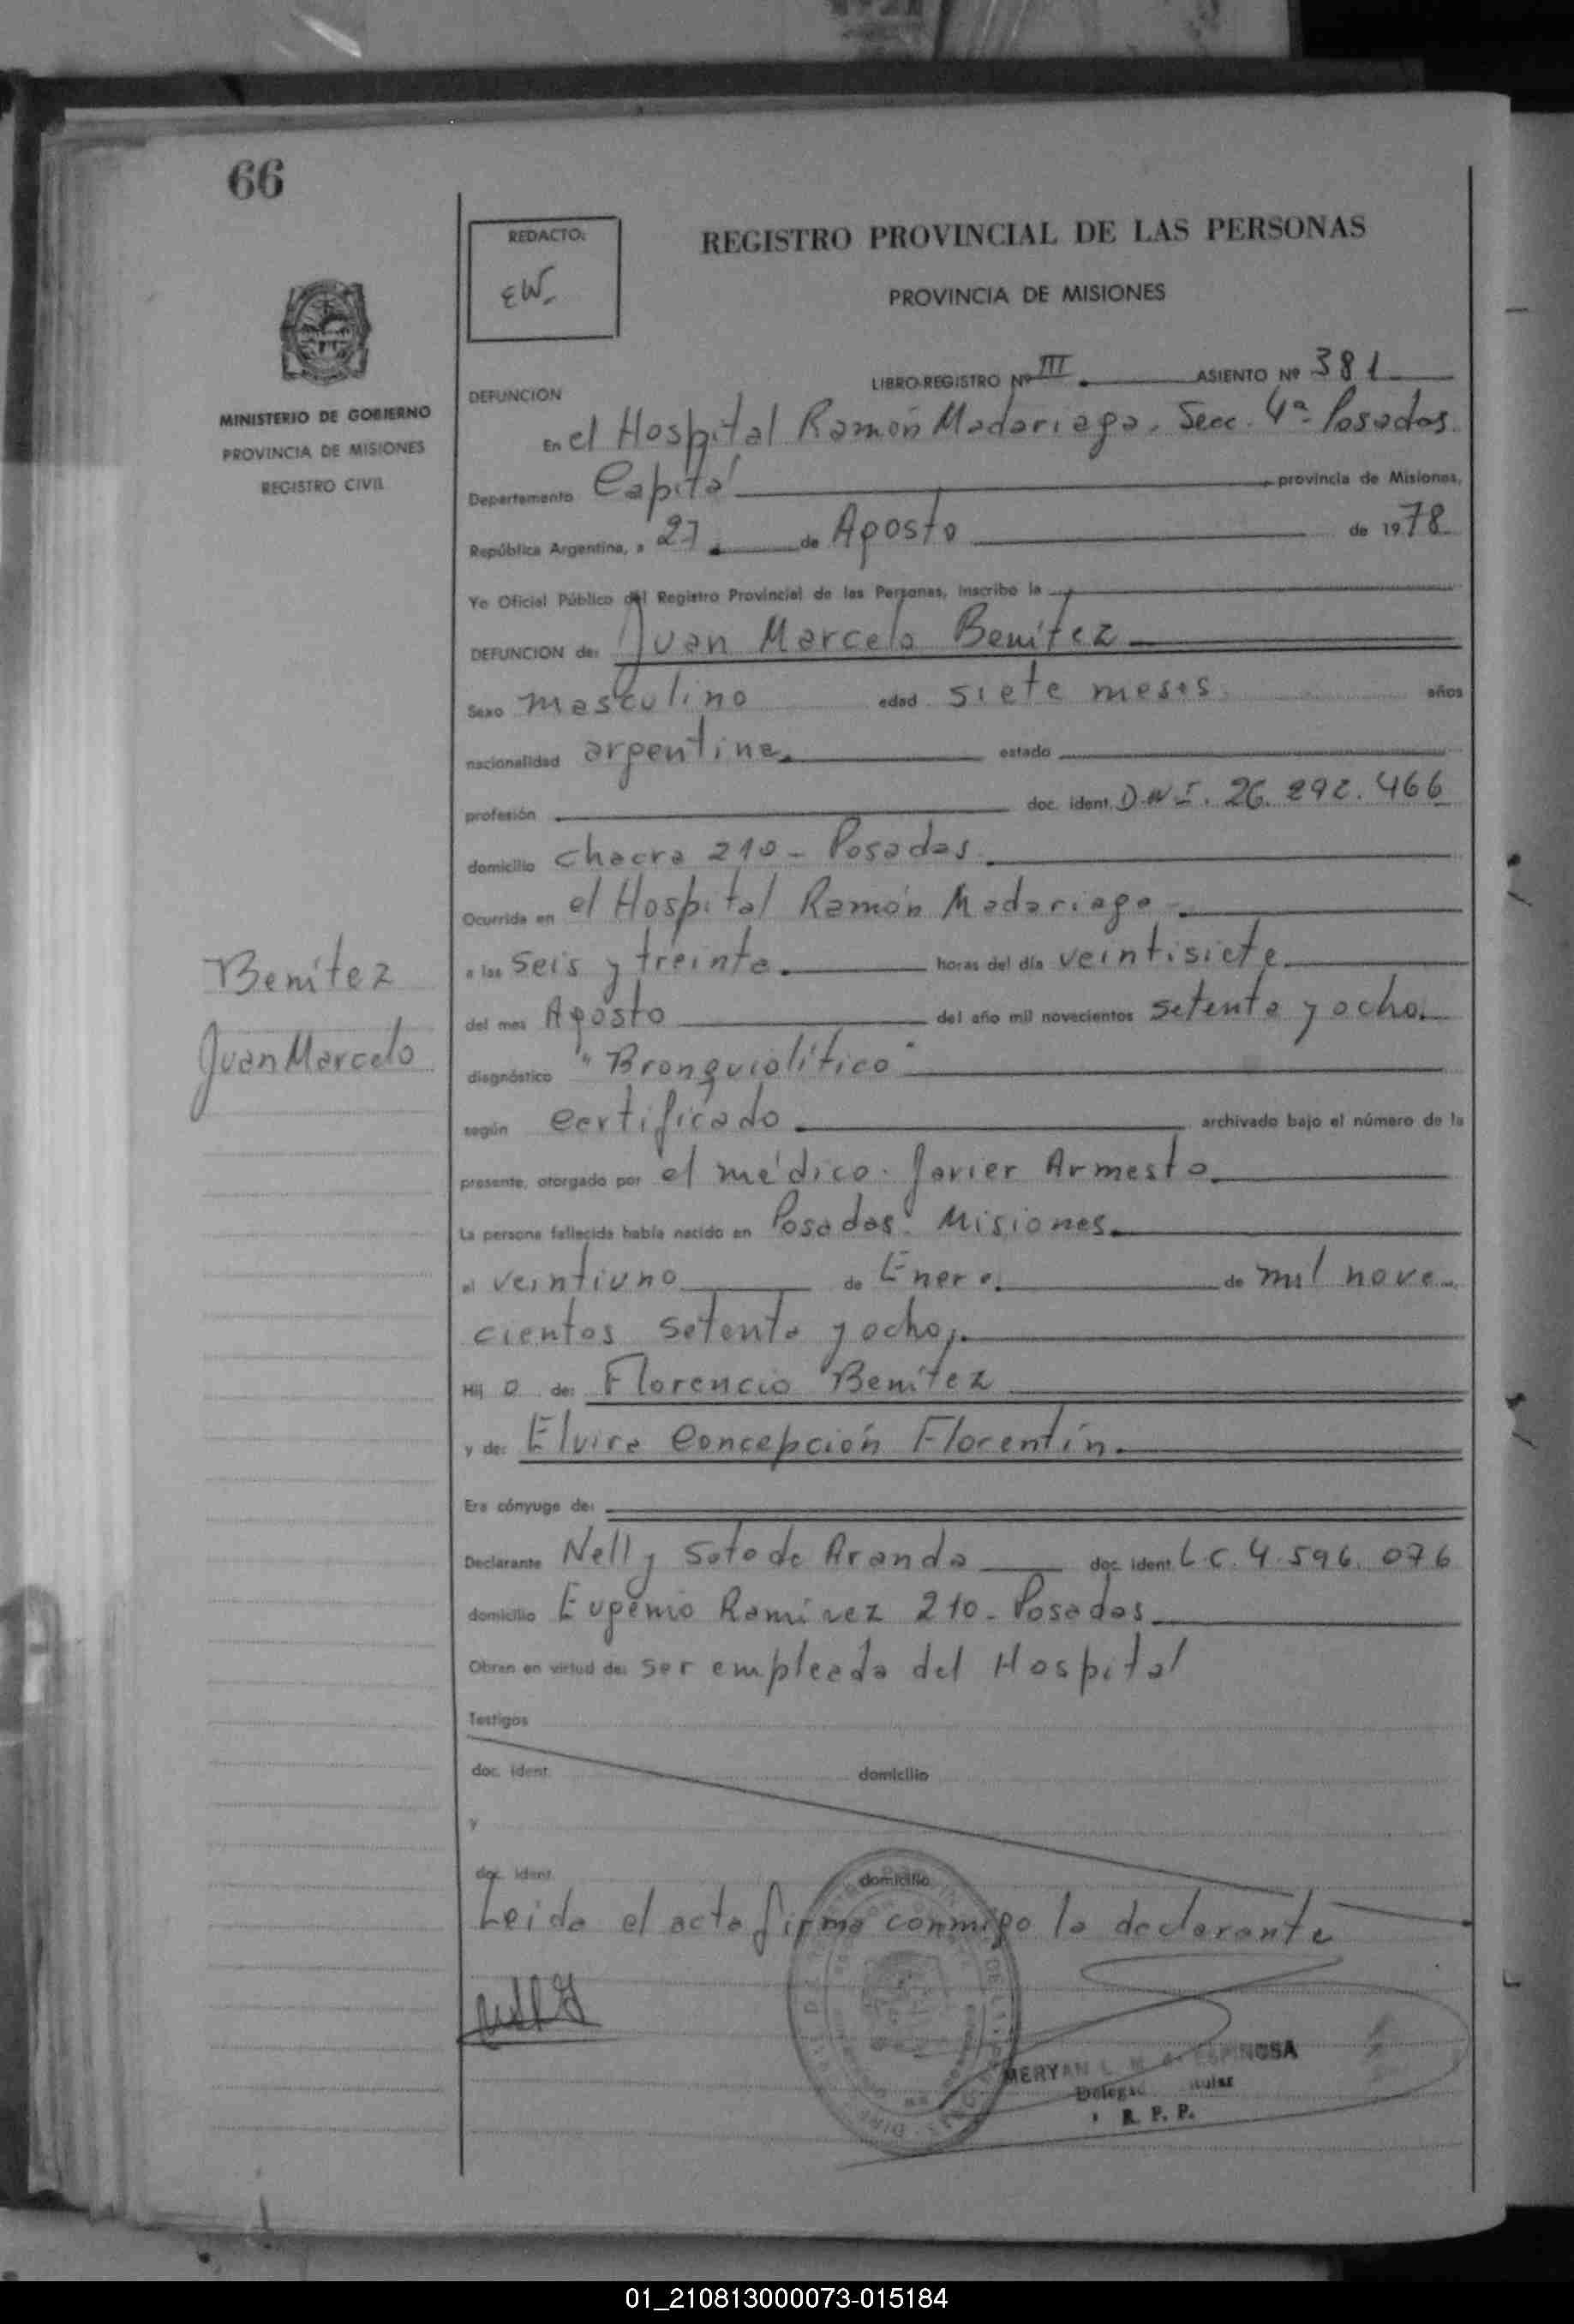 66
REDACTO:
EW.
REGISTRO PROVINCIAL DE LAS PERSONAS
PROVINCIA DE MISIONES
MINISTERIO DE GOBIERNO
PROVINCIA DE MISIONES
REGISTRO CIVIL
LIBRO-REGISTRO Nº III ASIENTO Nº 381
DEFUNCION
En el Hospital Ramón Madariaga. Secc. 4ª Posadas.
Departamento Capital provincia de Misiones,
República Argentina, a 27 de Agosto de 1978
Yo Oficial Público del Registro Provincial de las Personas, inscribo la
DEFUNCION de: Juan Marcelo Benítez
Sexo masculino edad siete meses años
nacionalidad argentina estado
profesión doc. ident. D.N.I. 26.292.466
domicilio Chacra 210 - Posadas.
Ocurrida en el Hospital Ramón Madariaga
a las seis y treinta horas del día veintisiete
del mes Agosto del año mil novecientos setenta y ocho.
diagnóstico "Bronquiolítico"
según certificado archivado bajo el número de la
presente, otorgado por el médico. Javier Armesto
La persona fallecida había nacido en Posadas. Misiones.
el veintiuno de Enero de mil nove
cientos setenta y ocho.
Hij o de: Florencio Benítez
y de: Elvira Concepción Florentín.
Era cónyuge de:
Declarante Nelly Soto de Aranda doc. ident. L.C. 4.596.076
domicilio Eugenio Ramirez 210 - Posadas
Obran en virtud de: ser empleada del Hospital
Testigos
doc. ident. domicilio
y
doc. ident. domicilio
Leida el acta firma conmigo la declarante
Benítez
Juan Marcelo
MERYAN L. ESPINOSA
R. P. P.
01_210813000073-015184